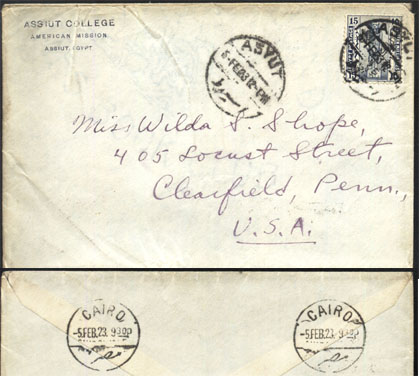 ASSIUT COLLEGE
AMERICAN MISSION
ASSIUT, EGYPT.
ASYUT
FEB 23 12-PM
15
Miss Wilda S. Shope,
405 Locust Street,
Clearfield, Penn.,
U.S.A.
CAIRO
-5.FEB.23.
CAIRO
-5.FEB.23.